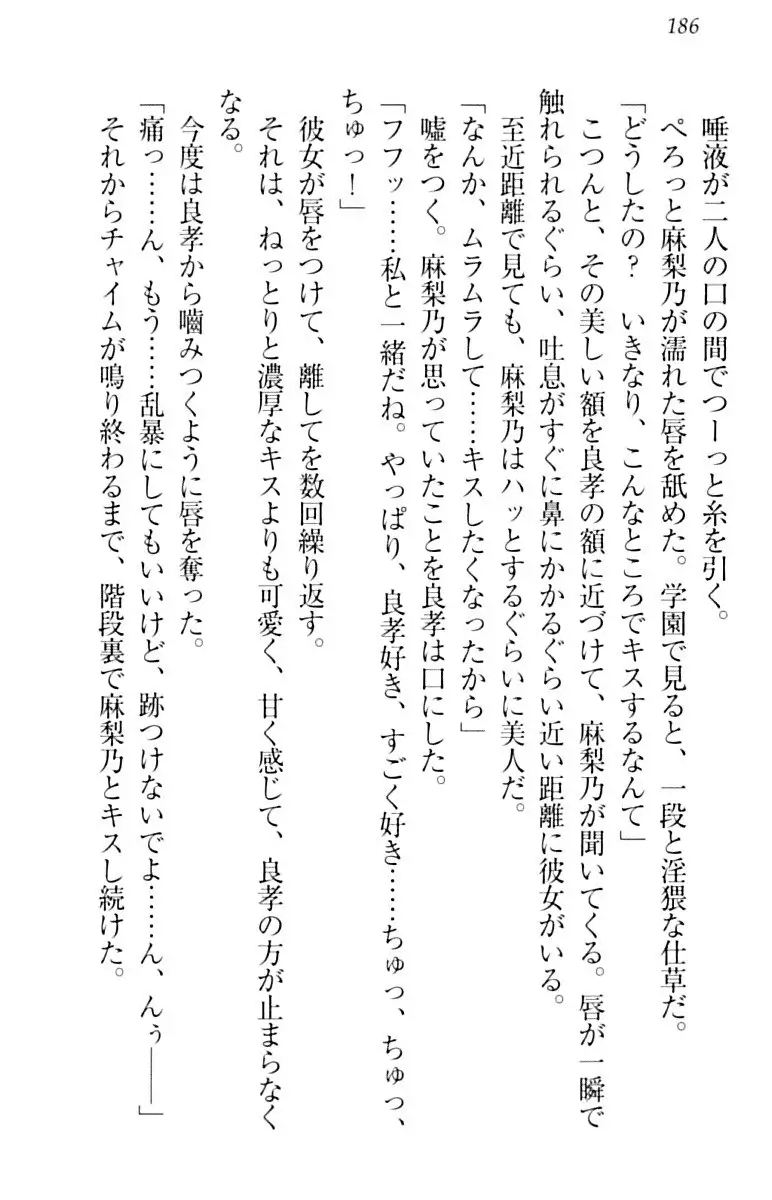 186
唾液が二人の口の間でつーっと糸を引く。
ぺろっと麻梨乃が濡れた唇を舐めた。学園で見ると、一段と淫猥な仕草だ。
「どうしたの？　いきなり、こんなところでキスするなんて」
こつんと、その美しい額を良孝の額に近づけて、麻梨乃が聞いてくる。唇が一瞬で
触れられるぐらい、吐息がすぐに鼻にかかるぐらい近い距離に彼女がいる。
至近距離で見ても、麻梨乃はハッとするぐらいに美人だ。
「なんか、ムラムラして……キスしたくなったから」
嘘をつく。麻梨乃が思っていたことを良孝は口にした。
「フフッ……私と一緒だね。やっぱり、良孝好き、すごく好き……ちゅっ、ちゅっ、
ちゅっ！」
彼女が唇をつけて、離してを数回繰り返す。
それは、ねっとりと濃厚なキスよりも可愛く、甘く感じて、良孝の方が止まらなく
なる。
今度は良孝から嚙みつくように唇を奪った。
「痛っ……ん、もう……乱暴にしてもいいけど、跡つけないでよ……ん、んぅ――」
それからチャイムが鳴り終わるまで、階段裏で麻梨乃とキスし続けた。